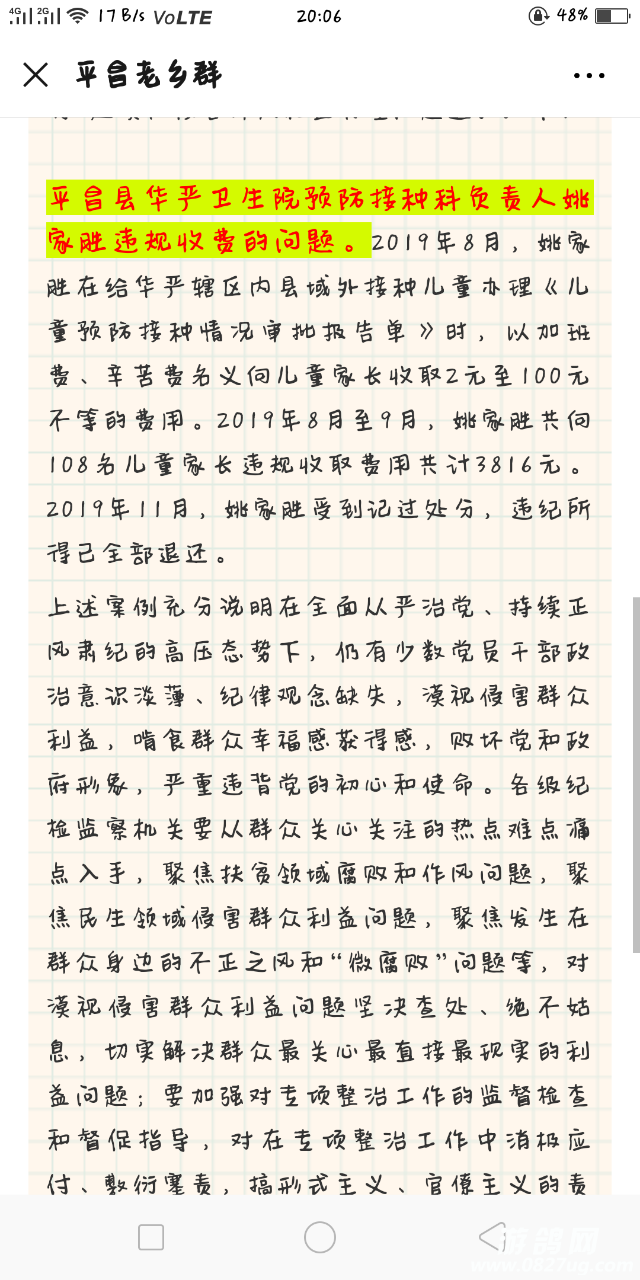 4G 2G 17 B/s VoLTE 20:06 48%
平昌老乡群
平昌县华严卫生院预防接种科负责人姚
家胜违规收费的问题。2019年8月，姚家
胜在给华严辖区内县域外接种儿童办理《儿
童预防接种情况审批报告单》时，以加班
费、辛苦费名义向儿童家长收取2元至100元
不等的费用。2019年8月至9月，姚家胜共向
108名儿童家长违规收取费用共计3816元。
2019年11月，姚家胜受到记过处分，违纪所
得已全部退还。
上述案例充分说明在全面从严治党、持续正
风肃纪的高压态势下，仍有少数党员干部政
治意识淡薄、纪律观念缺失，漠视侵害群众
利益，啃食群众幸福感获得感，败坏党和政
府形象，严重违背党的初心和使命。各级纪
检监察机关要从群众关心关注的热点难点痛
点入手，聚焦扶贫领域腐败和作风问题，聚
焦民生领域侵害群众利益问题，聚焦发生在
群众身边的不正之风和“微腐败”问题等，对
漠视侵害群众利益问题坚决查处、绝不姑
息，切实解决群众最关心最直接最现实的利
益问题；要加强对专项整治工作的监督检查
和督促指导，对在专项整治工作中消极应
付、敷衍塞责，搞形式主义、官僚主义的责
www.0827ug.com